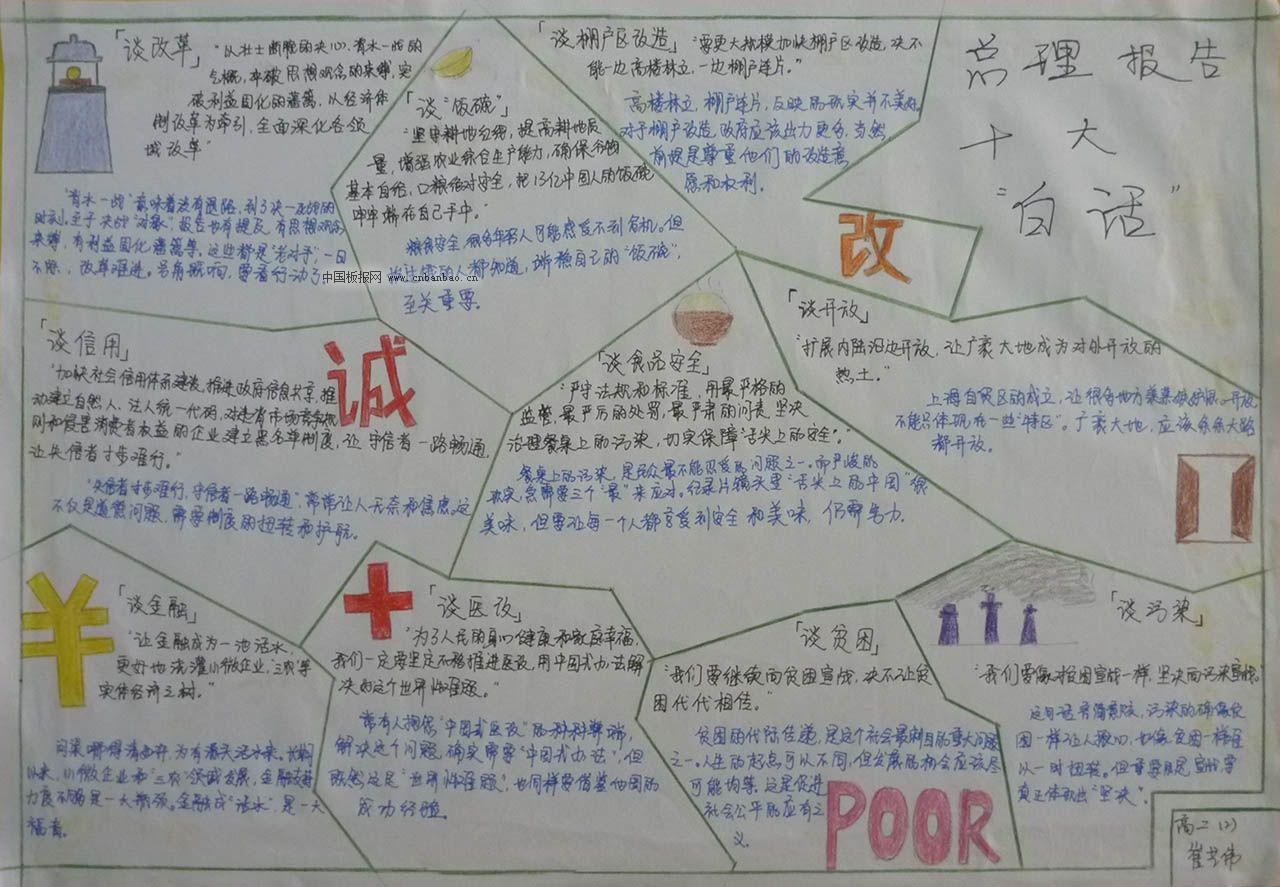 总理报告
十大
“白话”
「谈改革」
“以壮士断腕的决心、背水一战的
气概,冲破思想观念的束缚,突
破利益固化的藩篱,以经济体
制改革为牵引,全面深化各领
域改革”
“背水一战”意味着没有退路,到了决一死战的
时刻。至于决战“对象”,报告也有提及,有思想观念的
束缚,有利益固化藩篱等,这些都是“老对手”,一日
不除,改革难进。号角既响,要看行动了
中国板报网 www.cnbanbao.cn
「谈“饭碗”」
“坚守耕地红线,提高耕地质
量,增强农业综合生产能力,确保谷物
基本自给、口粮绝对安全,把13亿中国人的饭碗
牢牢端在自己手中。”
粮食安全,很多年轻人可能感受不到危机。但
的人都知道,端稳自己的“饭碗”,
至关重要。
「谈棚户区改造」
“要更大规模加快棚户区改造,决不
能一边高楼林立,一边棚户连片。”
高楼林立,棚户连片,反映的现实并不美好。
对于棚户改造,政府应该出力更多,当然,
前提是尊重他们的改造意
愿和权利。
改
「谈开放」
“扩展内陆沿边开放,让广袤大地成为对外开放的
热土。”
上海自贸区的成立,让很多地方羡慕嫉妒恨。开放
不能只体现在一些“特区”。广袤大地,应该条条大路
都开放。
「谈信用」
“加快社会信用体系建设,推进政府信息共享,推
动建立自然人、法人统一代码,对违背市场竞争原
则和侵害消费者权益的企业建立黑名单制度,让守信者一路畅通,
让失信者寸步难行。”
“失信者寸步难行,守信者一路畅通”,常常让人无奈和焦虑。这
不仅是道德问题,需要制度的扭转和护航。
诚
「谈食品安全」
“严守法规和标准,用最严格的
监管、最严厉的处罚、最严肃的问责,坚决
治理餐桌上的污染,切实保障‘舌尖上的安全’。”
餐桌上的污染,是民众最不能忍受的问题之一。而严峻的
现实,急需要三个“最”来应对。纪录片镜头里“舌尖上的中国”很
美味,但要让每一个人都享受到安全和美味,仍需努力。
「谈金融」
“让金融成为一池活水,
更好地浇灌小微企业、“三农”等
实体经济之树。”
问渠哪得清如许,为有源头活水来。长期
以来,小微企业和“三农”领域发展,金融支持
力度不够是一大瓶颈。金融成“活水”,是一大
福音。
「谈医改」
“为了人民的身心健康和家庭幸福,
我们一定要坚定不移推进医改,用中国式办法解
决好这个世界性难题。”
常有人抱怨“中国式医改”的种种弊端,
解决这个问题,确实需要“中国式办法”,但
既然这是“世界性难题”,也同样要借鉴他国的
成功经验。
「谈贫困」
“我们要继续向贫困宣战,决不让贫
困代代相传。”
贫困的代际传递,是这个社会最刺目的重大问题
之一。人生的起点可以不同,但发展的机会应该尽
可能均等,这是促进
社会公平的应有之
义。
POOR
「谈污染」
“我们要像对贫困宣战一样,坚决向污染宣战。”
这句话另有意味,污染的确像贫
困一样让人揪心,也像贫困一样难
以一时扭转。但重要的是宣战,要
真正体现出“坚决”。
高二(2)